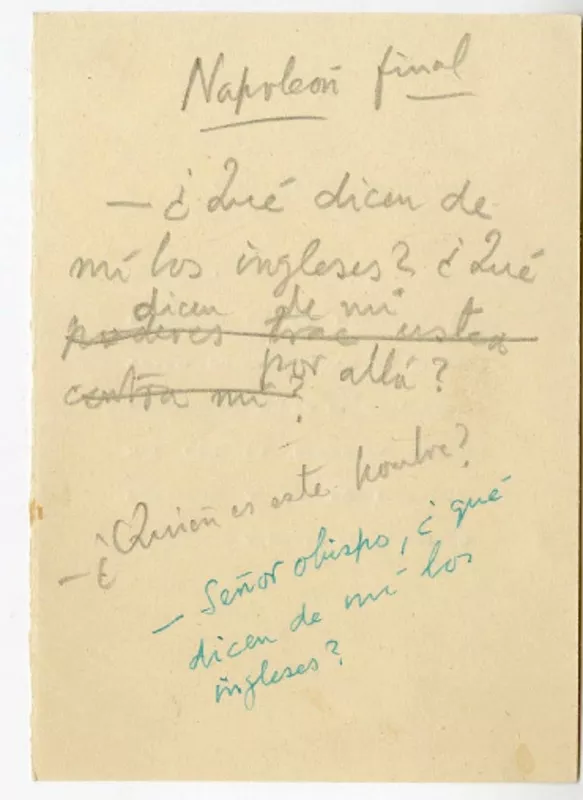 Napoleón final
— ¿Qué dicen de
mí los ingleses? ¿Qué
dicen de mí
poderes trae usted
por allá?
contra mí?
— ¿Quién es este hombre?
— Señor obispo, ¿qué
dicen de mí los
ingleses?